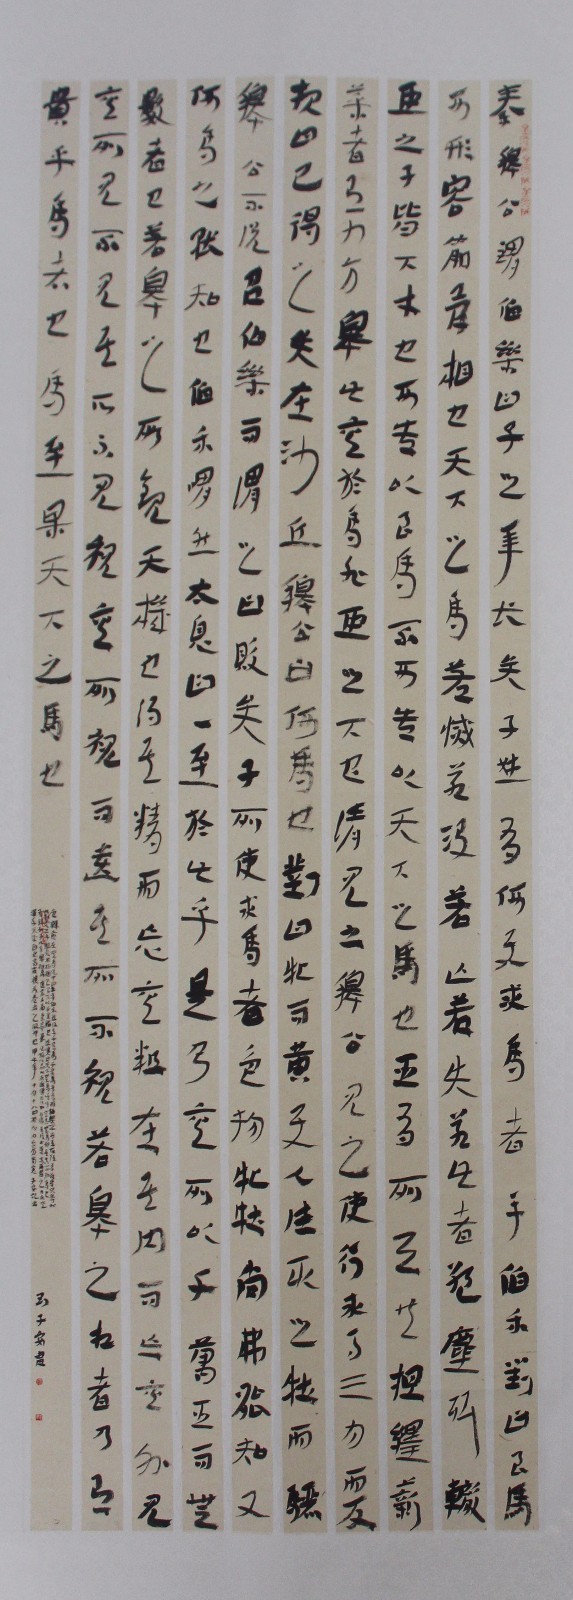 秦穆公謂伯樂曰子之年长矣子姓有何使求馬者乎伯乐對曰良馬
可形容筋骨相也天下之馬若滅若没若亡若失若此者絕塵弭轍
臣之子皆下才也可告以良馬不可告以天下之馬也臣有所与共担纆薪
菜者有九方皋此其於馬非臣之下也請見之穆公見之使行求馬三月而反
報曰已得之矣在沙丘穆公曰何馬也對曰牝而黄使人往取之牡而驪
穆公不悦召伯樂而謂之曰敗矣子所使求馬者色物牝牡尚弗能知又
何馬之能知也伯乐喟然太息曰一至於此乎是乃其所以千萬臣而無
數者也若皋之所觀天機也得其精而忘其粗在其内而忘其外見
其所見不見其所不見視其所視而遺其所不視若皋之相者乃有
貴乎馬者也馬至果天下之馬也
子安書